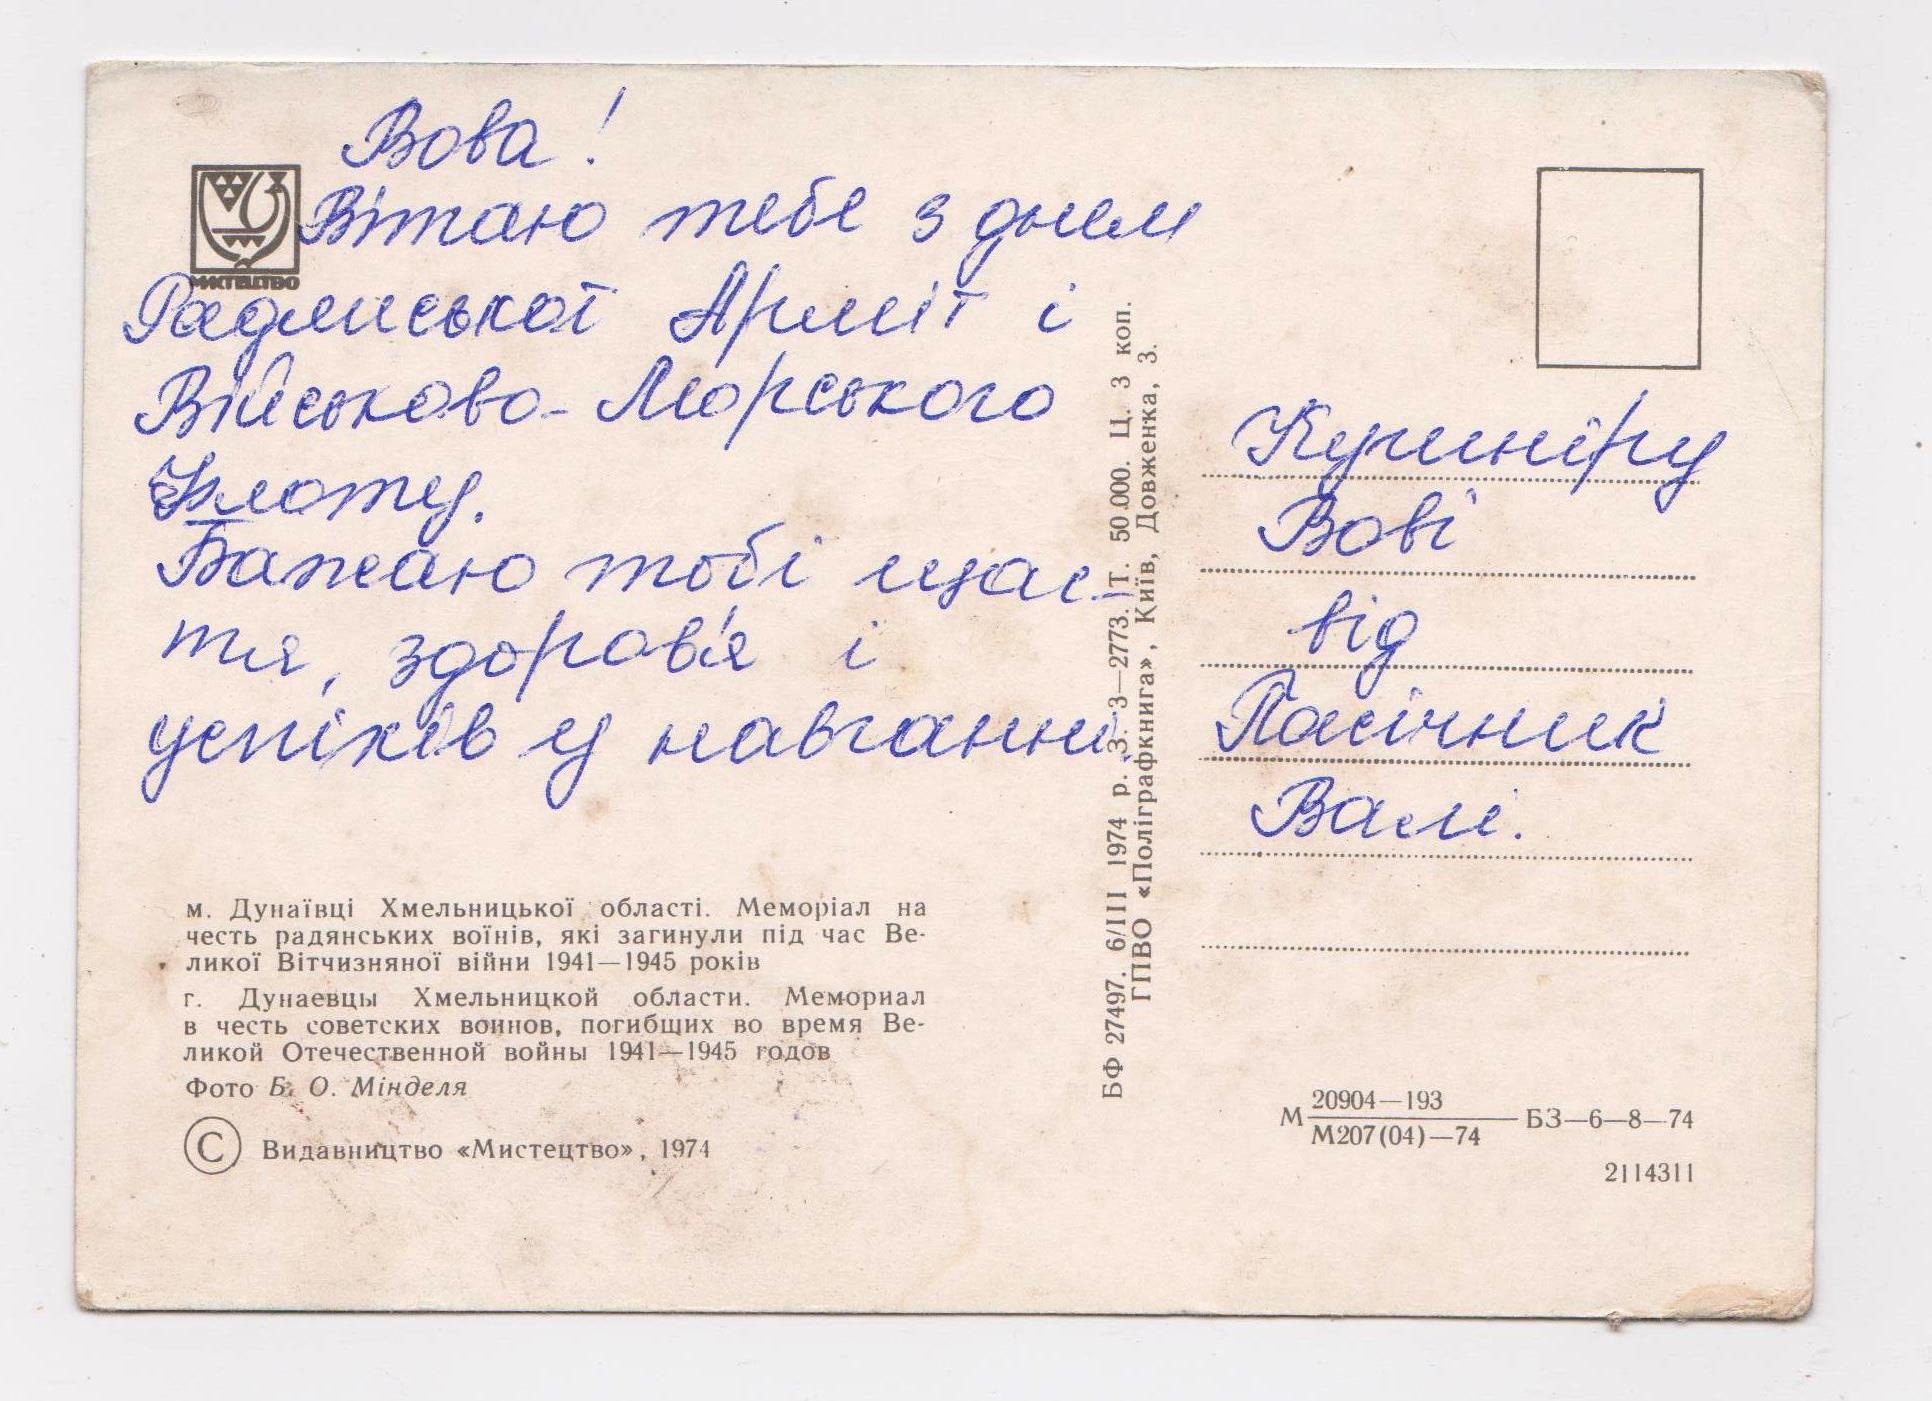 Вова!
Вітаю тебе з днем
Радянської Армії і
Військово-Морського
Флоту.
Бажаю тобі щас-
тя, здоров'я і
успіхів у навчанні.
МИСТЕЦТВО
м. Дунаївці Хмельницької області. Меморіал на
честь радянських воїнів, які загинули під час Ве-
ликої Вітчизняної війни 1941—1945 років
г. Дунаевцы Хмельницкой области. Мемориал
в честь советских воинов, погибших во время Ве-
ликой Отечественной войны 1941—1945 годов
Фото Б. О. Мінделя
© Видавництво «Мистецтво», 1974
БФ 27497. 6/III 1974 р. З. 3—2773. Т. 50.000. Ц. 3 коп.
ГПВО «Поліграфкнига», Київ, Довженка, 3.
Кушніру
Вові
від
Пасічник
Валі.
М 20904—193
М207(04)—74 БЗ—6—8—74
2114311